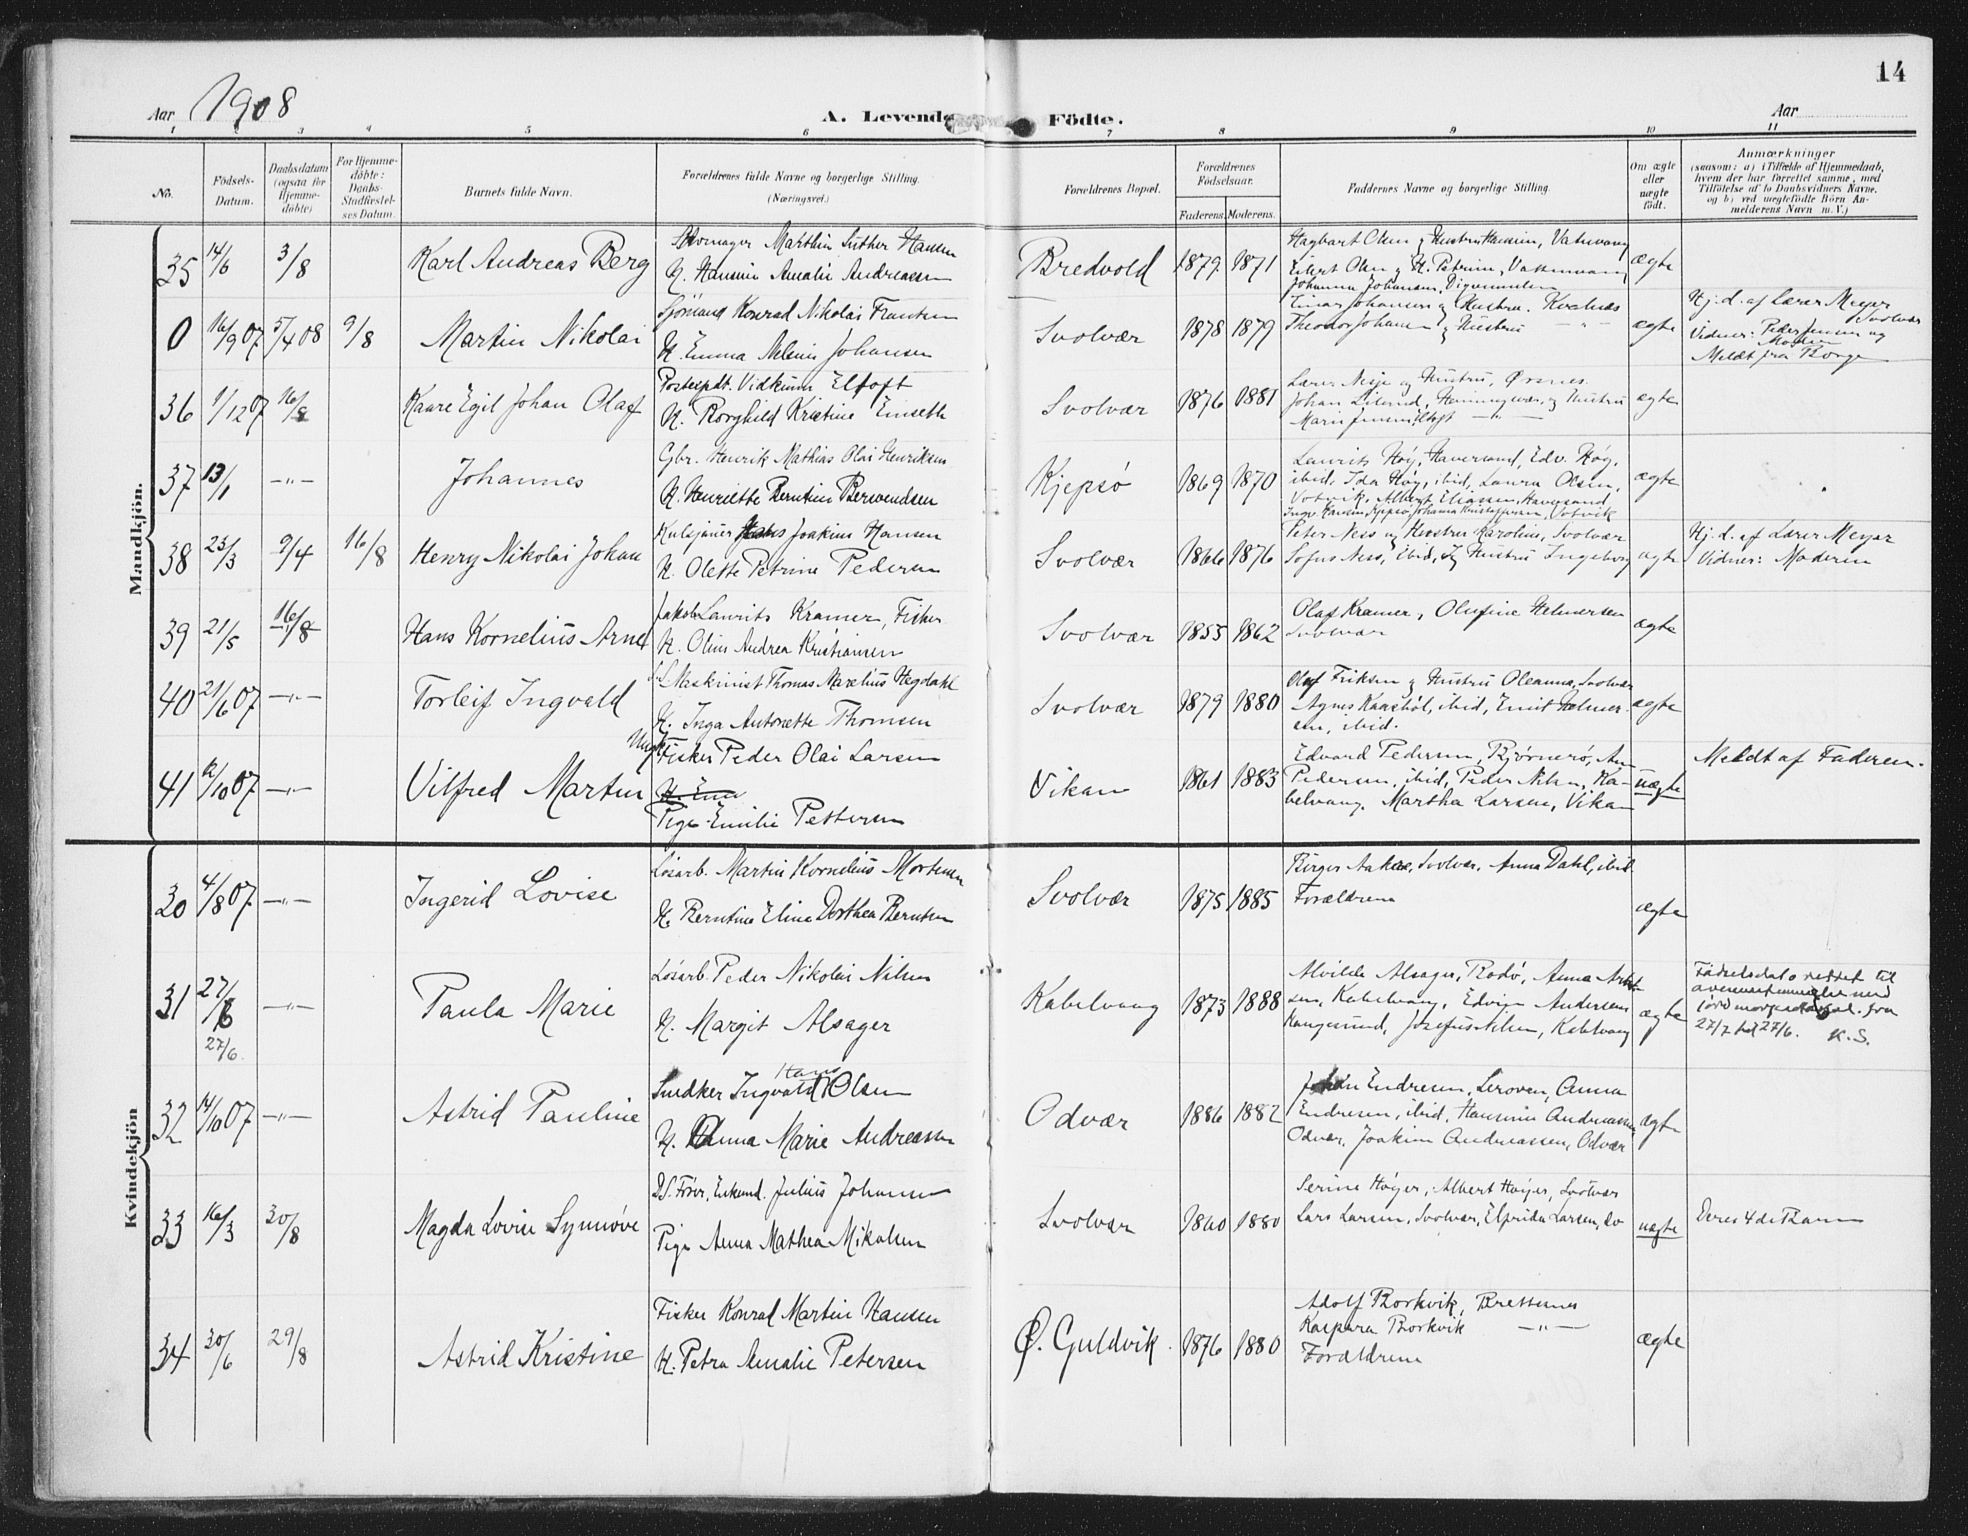 14
Aar 1908 A. Levende Födte. Aar
1 2 3 4 5 6 7 8 9 10 11
No.
Födsels-Datum.
Daabsdatum (ogsaa for Hjemme-döbte)
For Hjemme-döbte: Daabs-Stadfæstel-ses Datum.
Barnets fulde Navn.
Forældrenes fulde Navne og borgerlige Stilling. (Næringsvei.)
Forældrenes Bopæl.
Forældrenes Födselsaar.
Faderens. Moderens.
Faddernes Navne og borgerlige Stilling.
Om ægte eller uægte födt.
Anmærkninger
(saasom: a) i Tilfælde af Hjemmedaab,
hvem der har forrettet samme, med
Tilföielse af to Daabsvidners Navne,
og b) ved uægtefödte Börn An-
melderens Navn m. V.)
Mandkjön.
35 14/6 3/8 Karl Andreas Berg
Skomager Marthin Luther Hansen
H. Hansine Amalie Andreassen
Bredvold 1879 1871
Hagbart Olsen g Hustru Hansine, Vatervaag
Eilert Olsen g H. Petrine,
Johanna Johansen, Digermulen
ægte
0 16/9 07 5/4 08 9/8 Martin Nikolai
Sjömand Konrad Nikolai Frantsen
H. Emma Johansen
Svolvær 1878 1879
Einar Johansen g Hustru. Kvalnes
Theodor Johansen g Hustru — " —
ægte
Hj. d. af Lærer Meyer
Svolvær
Vidner: Peder Jensen og
Moderen
Meldt fra Borge
36 1/12 07 16/8 Kaare Egil Johan Olaf
Postexpdt. Vidkunn Eltoft
H. Borghild Kristine Einseth
Svolvær 1876 1881
Lærer Nesje og Hustru, Ørsnes.
Johan, Henningvær, og Hustru
Marie Jensen Eltoft — " —
ægte
37 13/1 — " — Johannes
Gbr. Henrik Mathias Olai Henriksen
H. Henriette Berntine Berntsen
Kjepsö 1869 1870
Laurits Höy, Haversand, Edv. Höy,
ibid, Ida Höy, ibid, Laura Olsen,
Votvik, Albert Eliassen, Haversand,
Inga Hansen, Kjepsö, Johanna Kristoffersen, Votvik
ægte
38 23/3 9/4 16/8 Henry Nikolai Johan
Kulsjauer Hans Joakim Hansen
H. Olette Petrine Pedersen
Svolvær 1866 1876
Peter Ness og Hustru Karoline, Svolvær
Sofus Ness, ibid, g Hustru Ingeborg
ægte
Hj. d. af Lærer Meyer
Vidner: Moderen
39 21/5 16/8 Hans Kornelius Arne
Jakob Laurits Kramer, Fisker
H. Oline Andrea Kristiansen
Svolvær 1855 1862
Olaf Kramer, Olufine Helmersen
Svolvær
ægte
40 21/6 07 — " — Torleif Ingvald
Maskinist Thomas Marelius Hegdahl
H. Inga Antonette Thomsen
Svolvær 1879 1880
Olaf Eriksen g Hustru Oleanna, Svolvær
Agnes Kaasböl, ibid, Emil Helmer-
sen, ibid.
ægte
41 9/10 07 — " — Vilfred Martin
Ungk. Fisker Peder Olai Larsen
H. Emi
Pige Emilie Pettersen
Vikan 1861 1883
Edvard Pedersen, Bjørnerø, Ane
Pedersen, ibid, Peder Nilsen, Ka-
belvaag. Martha Larsen, Vikan
uægte
Meldt af Faderen.
Kvindekjön
20 4/8 07 — " — Ingerid Lovise
Lösarb. Martin Kornelius Mortensen
H. Berntine Eline Dorthea Berntsen
Svolvær 1875 1885
Birger Aakre, Svolvær. Anna Dahl, ibid
Forældrene
ægte
31 27/6 — " — Paula Marie
27/6.
Lösarb. Peder Nikolai Nilsen
H. Margit Alsager
Kabelvaag 1873 1888
Alvilde Alsager, Rodö, Anna Arnt-
sen, Kabelvaag, Edvin Andersen
Kaugesund, Josefus Nilsen, Kabelvaag
ægte
Födselsdato rettet til
overensstemmelse med
jordmorprotokol. fra
27/7 til 27/6. K. S.
32 14/10 07 — " — Astrid Pauline
Hans
Snedker Ingvald Olsen
H. Anna Marie Andreassen
Odvær 1886 1882
Johan Endresen, Leroven, Anna
Endresen, ibid, Hansine Andreassen,
Odvær, Joakim Andreassen, Odvær
ægte
33 16/3 30/8 Magda Lovise Synnöve
D.S. Förer, Enkemd. Julius Johansen
Pige Anna Mathea Mikalsen
Svolvær 1860 1880
Serine Höyer, Albert Höyer, Svolvær
Lars Larsen, Svolvær, Elfrida Larsen, do
uægte
Deres 4de Barn
34 30/6 29/8 Astrid Kristine
Fisker Konrad Martin Hansen
H. Petra Amalie Petersen
Ø. Guldvik. 1876 1880
Adolf Borkvik, Brettesnes
Kaspara Borkvik — " —
Forældrene
ægte